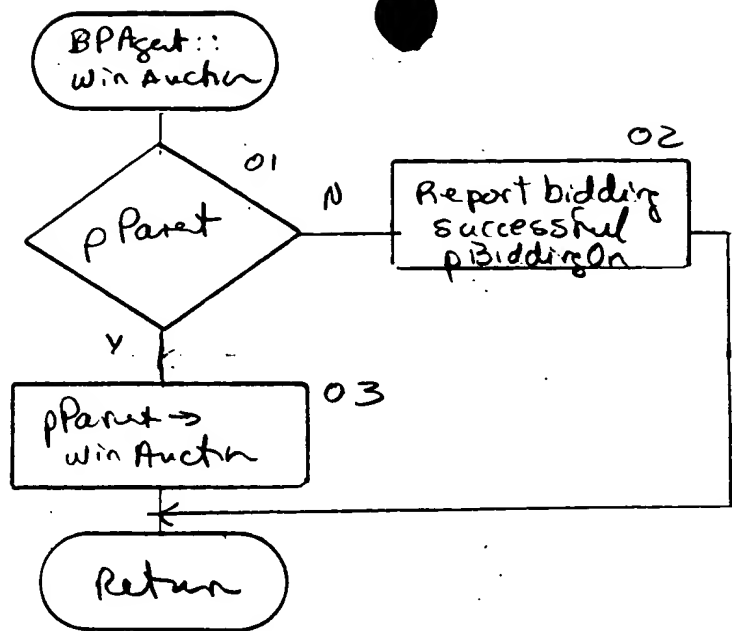 BPAgent::
Win Auction
01
pParent
N
02
Report bidding
successful
pBiddingOn
Y
03
pParent→
win Auction
Return